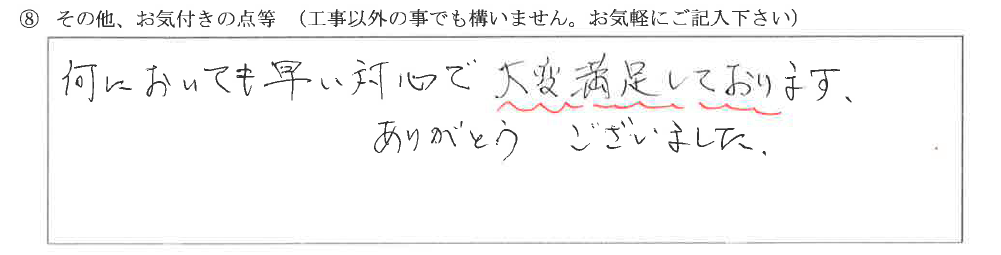 ⑧ その他、お気付きの点等 （工事以外の事でも構いません。お気軽にご記入下さい）
何においても早い対心で大変満足しております、
ありがとう ございました.